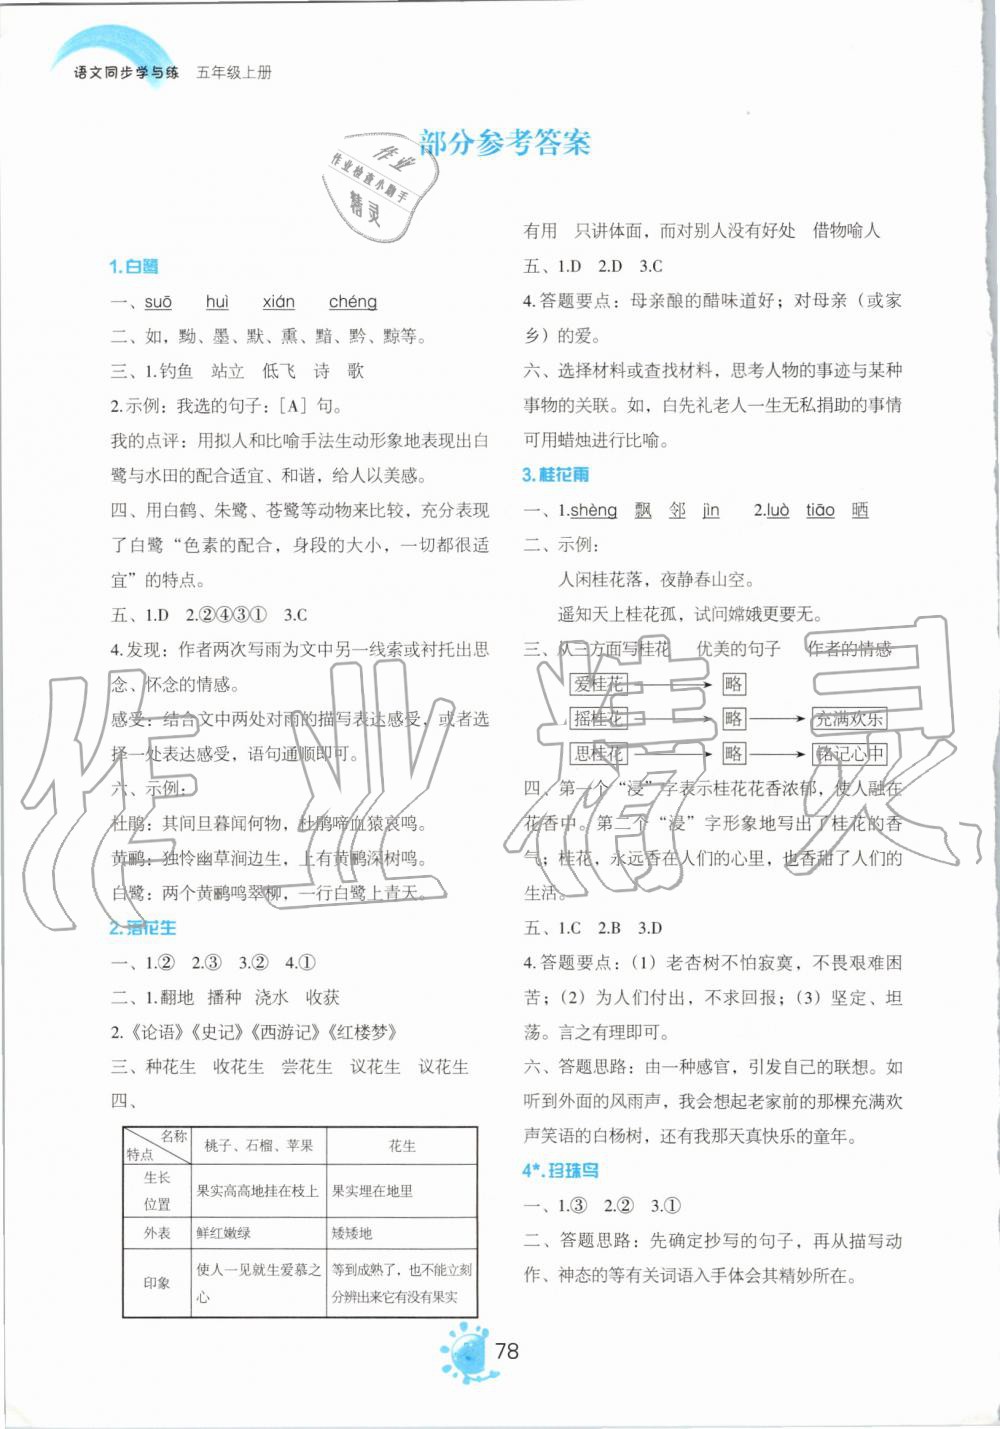 语文同步学与练 五年级上册
部分参考答案
作业
作业检查小助手
精灵
1.白鹭
一、suō huì xián chéng
二、如，黝、墨、默、熏、黯、黔、黥等。
三、1.钓鱼 站立 低飞 诗 歌
2.示例：我选的句子：[A]句。
我的点评：用拟人和比喻手法生动形象地表现出白
鹭与水田的配合适宜、和谐，给人以美感。
四、用白鹤、朱鹭、苍鹭等动物来比较，充分表现
了白鹭“色素的配合，身段的大小，一切都很适
宜”的特点。
五、1.D 2.②④③① 3.C
4.发现：作者两次写雨为文中另一线索或衬托出思
念、怀念的情感。
感受：结合文中两处对雨的描写表达感受，或者选
择一处表达感受，语句通顺即可。
六、示例：
杜鹃：其间旦暮闻何物，杜鹃啼血猿哀鸣。
黄鹂：独怜幽草涧边生，上有黄鹂深树鸣。
白鹭：两个黄鹂鸣翠柳，一行白鹭上青天。
2.落花生
一、1.② 2.③ 3.② 4.①
二、1.翻地 播种 浇水 收获
2.《论语》《史记》《西游记》《红楼梦》
三、种花生 收花生 尝花生 议花生 议花生
四、
名称
特点
桃子、石榴、苹果 花生
生长
位置
果实高高地挂在枝上 果实埋在地里
外表 鲜红嫩绿 矮矮地
印象
使人一见就生爱慕之
心
等到成熟了，也不能立刻
分辨出来它有没有果实
有用 只讲体面，而对别人没有好处 借物喻人
五、1.D 2.D 3.C
4.答题要点：母亲酿的醋味道好；对母亲（或家
乡）的爱。
六、选择材料或查找材料，思考人物的事迹与某种
事物的关联。如，白先礼老人一生无私捐助的事情
可用蜡烛进行比喻。
3.桂花雨
一、1.shèng 飘 邻 jìn 2.luò tiāo 晒
二、示例：
人闲桂花落，夜静春山空。
遥知天上桂花孤，试问嫦娥更要无。
三、从三方面写桂花 优美的句子 作者的情感
爱桂花 略
摇桂花 略 充满欢乐
思桂花 略 铭记心中
四、第一个“浸”字表示桂花花香浓郁，使人融在
花香中。第二个“浸”字形象地写出了桂花的香
气；桂花，永远香在人们的心里，也香甜了人们的
生活。
五、1.C 2.B 3.D
4.答题要点：（1）老杏树不怕寂寞，不畏艰难困
苦；（2）为人们付出，不求回报；（3）坚定、坦
荡。言之有理即可。
六、答题思路：由一种感官，引发自己的联想。如
听到外面的风雨声，我会想起老家前的那棵充满欢
声笑语的白杨树，还有我那天真快乐的童年。
4*.珍珠鸟
一、1.③ 2.② 3.①
二、答题思路：先确定抄写的句子，再从描写动
作、神态的等有关词语入手体会其精妙所在。
78
作业精灵